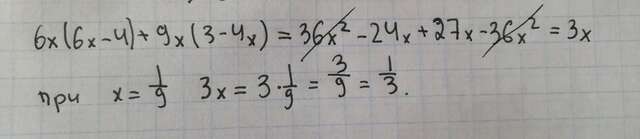 6x(6x-4)+9x(3-4x)=36x²-24x+27x-36x²=3x
при x=1/9 3x=3·1/9=3/9=1/3.